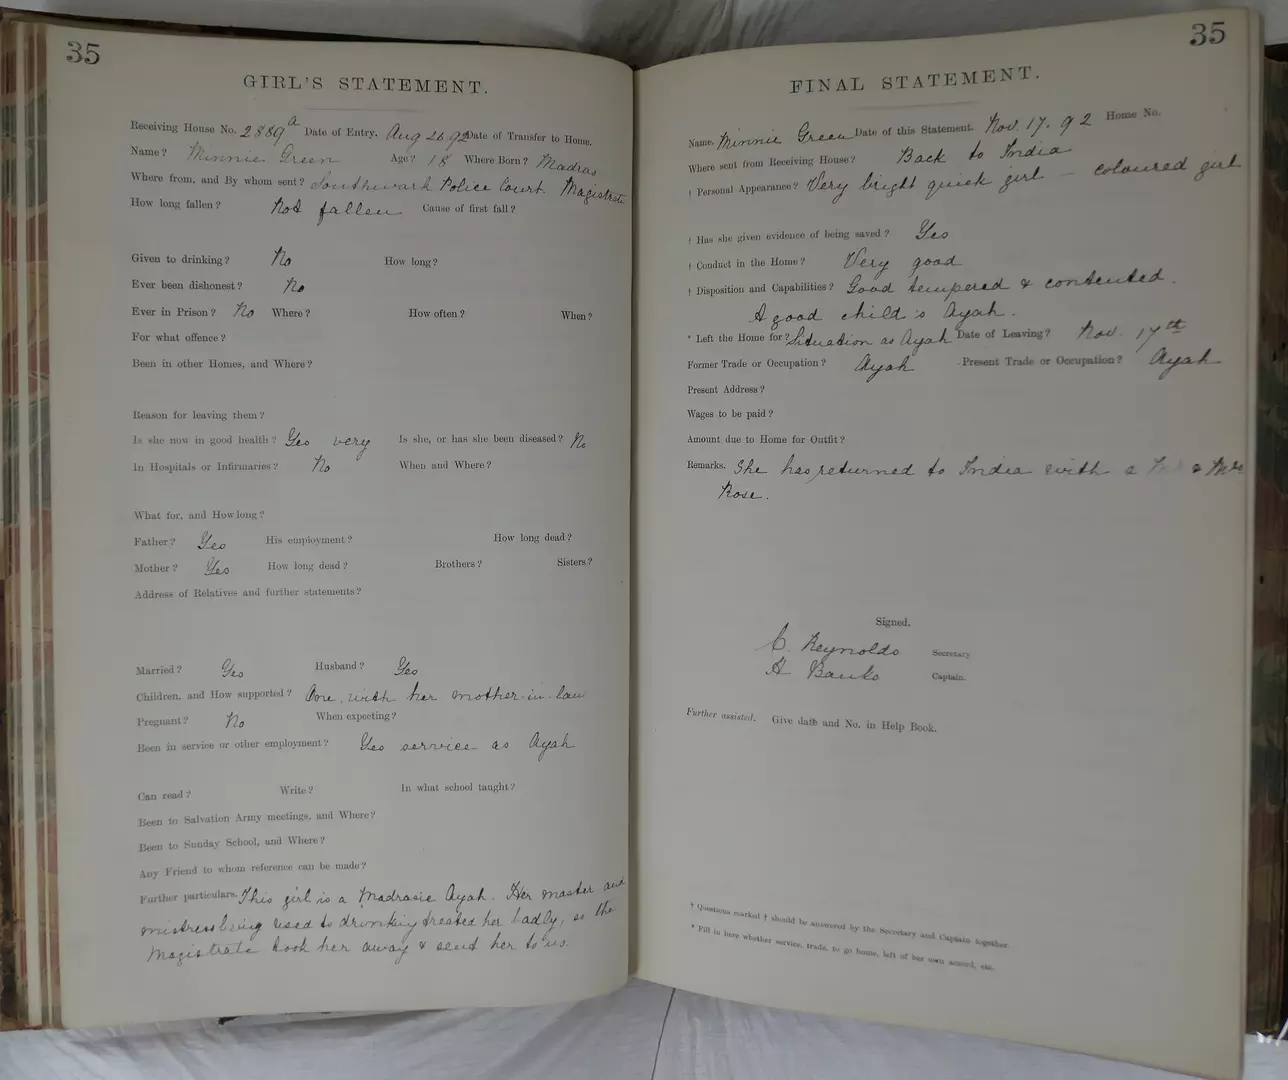 35
GIRL'S STATEMENT.
Receiving House No. 2889a Date of Entry. Aug 26 92 Date of Transfer to Home.
Name? Minnie Green Age? 18 Where Born? Madras
Where from, and By whom sent? Southwark Police Court Magistrate
How long fallen? Not fallen Cause of first fall?
Given to drinking? No How long?
Ever been dishonest? No
Ever in Prison? No Where? How often? When?
For what offence?
Been in other Homes, and Where?
Reason for leaving them?
Is she now in good health? Yes very Is she, or has she been diseased? No
In Hospitals or Infirmaries? No When and Where?
What for, and How long?
Father? Yes His employment? How long dead?
Mother? Yes How long dead? Brothers? Sisters?
Address of Relatives and further statements?
Married? Yes Husband? Yes
Children, and How supported? One, with her mother-in-law
Pregnant? No When expecting?
Been in service or other employment? Yes service as Ayah
Can read? Write? In what school taught?
Been to Salvation Army meetings, and Where?
Been to Sunday School, and Where?
Any Friend to whom reference can be made?
Further particulars. This girl is a Madrasie Ayah. Her master and
mistress being used to drinking treated her badly, so the
Magistrate took her away & send her to us.
35
FINAL STATEMENT.
Name. Minnie Green Date of this Statement. Nov. 17. 92 Home No.
Where sent from Receiving House? Back to India
† Personal Appearance? Very bright quick girl – coloured girl
† Has she given evidence of being saved? Yes
† Conduct in the Home? Very good
† Disposition and Capabilities? Good tempered & contented.
A good child's Ayah.
* Left the Home for? Situation as Ayah Date of Leaving? Nov. 17th
Former Trade or Occupation? Ayah Present Trade or Occupation? Ayah
Present Address?
Wages to be paid?
Amount due to Home for Outfit?
Remarks. She has returned to India with a & Mrs
Rose.
Signed.
C. Reynolds Secretary
A Banks Captain.
Further assisted. Give date and No. in Help Book.
† Questions marked † should be answered by the Secretary and Captain together.
* Fill in here whether service, trade, to go home, left of her own accord, etc.